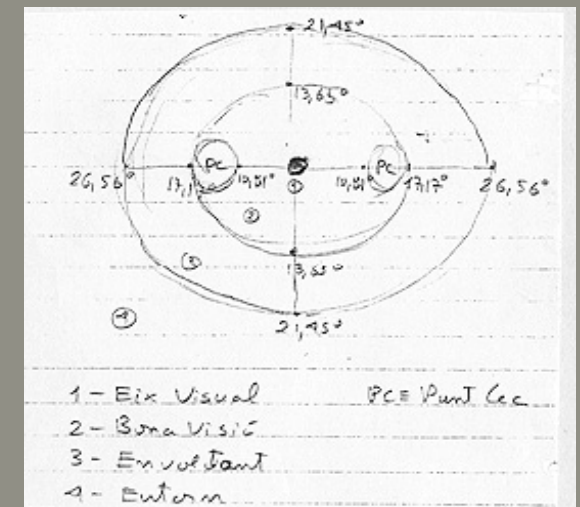 21,45°
13,65°
PC PC
26,56° 17,1 10,81° ① 10,81° 17,17° 26,56°
②
③
13,65°
④
21,45°
1 - Eix Visual PC ≡ Punt Cec
2 - Bona Visió
3 - Envoltant
4 - Entorn